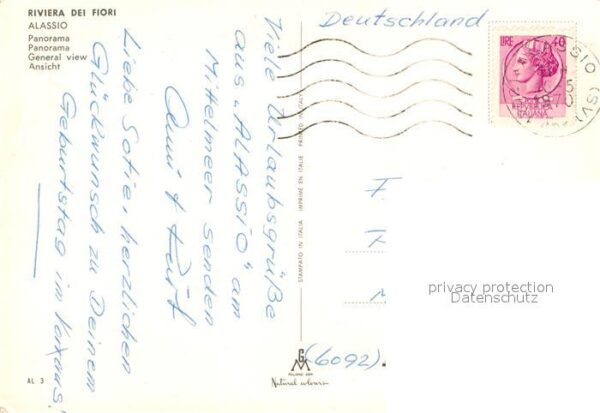 RIVIERA DEI FIORI
ALASSIO
Panorama
Panorama
General view
Ansicht
Deutschland
LIRE 40
REPUBBLICA
ITALIANA
Viele Urlaubsgrüße
aus „ALASSIO" am
Mittelmeer senden
Liebe Sofie, herzlichen
Glückwunsch zu Deinem
Geburtstag im Voraus!
STAMPATO IN ITALIA IMPRIMÉ EN ITALIE PRINTED IN ITALY
F
F
M
privacy protection
Datenschutz
(6092)
Natural colours
AL 3